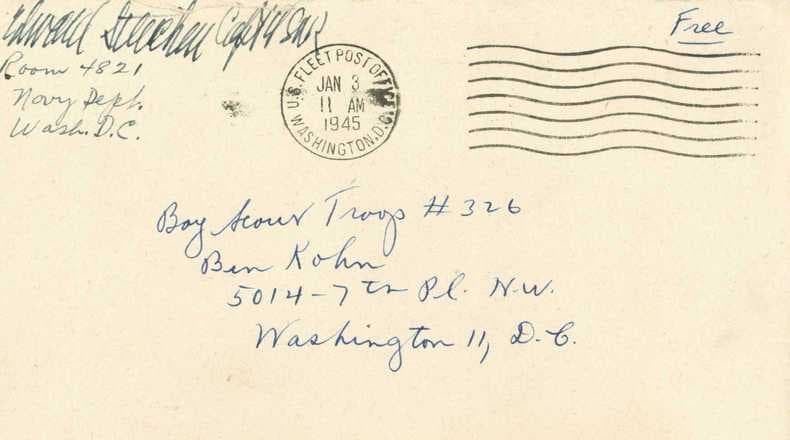 Edward Steichen Capt USNR
Room 4821
Navy Dept.
Wash. D.C.
Free
U.S. FLEET POST OFFICE
JAN 3
11 AM
1945
WASHINGTON, D.C.
Boy Scout Troop #326
Ben Kohn
5014-7th Pl. N.W.
Washington 11, D.C.